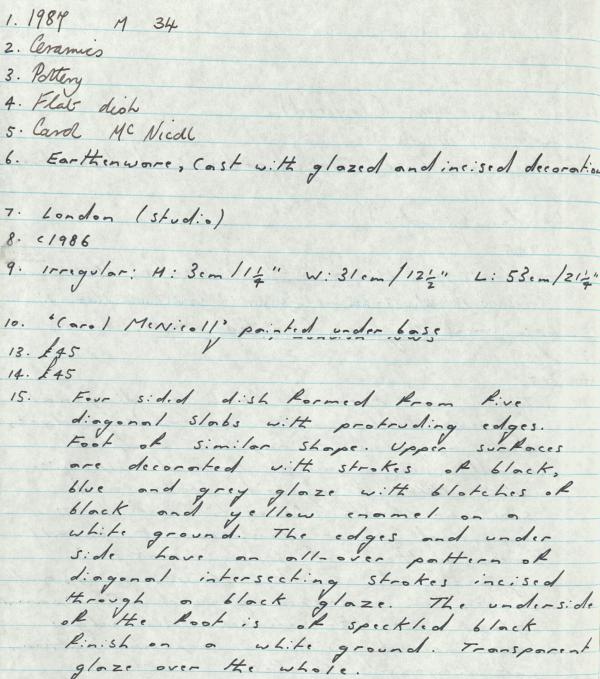 1. 1987 M 34
2. Ceramics
3. Pottery
4. Flat dish
5. Carol Mc Nicoll
6. Earthenware, Cast with glazed and incised decoration
7. London (studio)
8. c1986
9. irregular: H: 3cm/1¼" W: 31cm/12½" L: 53cm/21¼"
10. 'Carol McNicoll' painted under base
13. £45
14. £45
15. Four sided dish formed from five
diagonal slabs with protruding edges.
Foot of similar shape. Upper surfaces
are decorated with strokes of black,
blue and grey glaze with blotches of
black and yellow enamel on a
white ground. The edges and under
side have an all-over pattern of
diagonal intersecting strokes incised
through a black glaze. The underside
of the foot is of speckled black
finish on a white ground. Transparent
glaze over the whole.